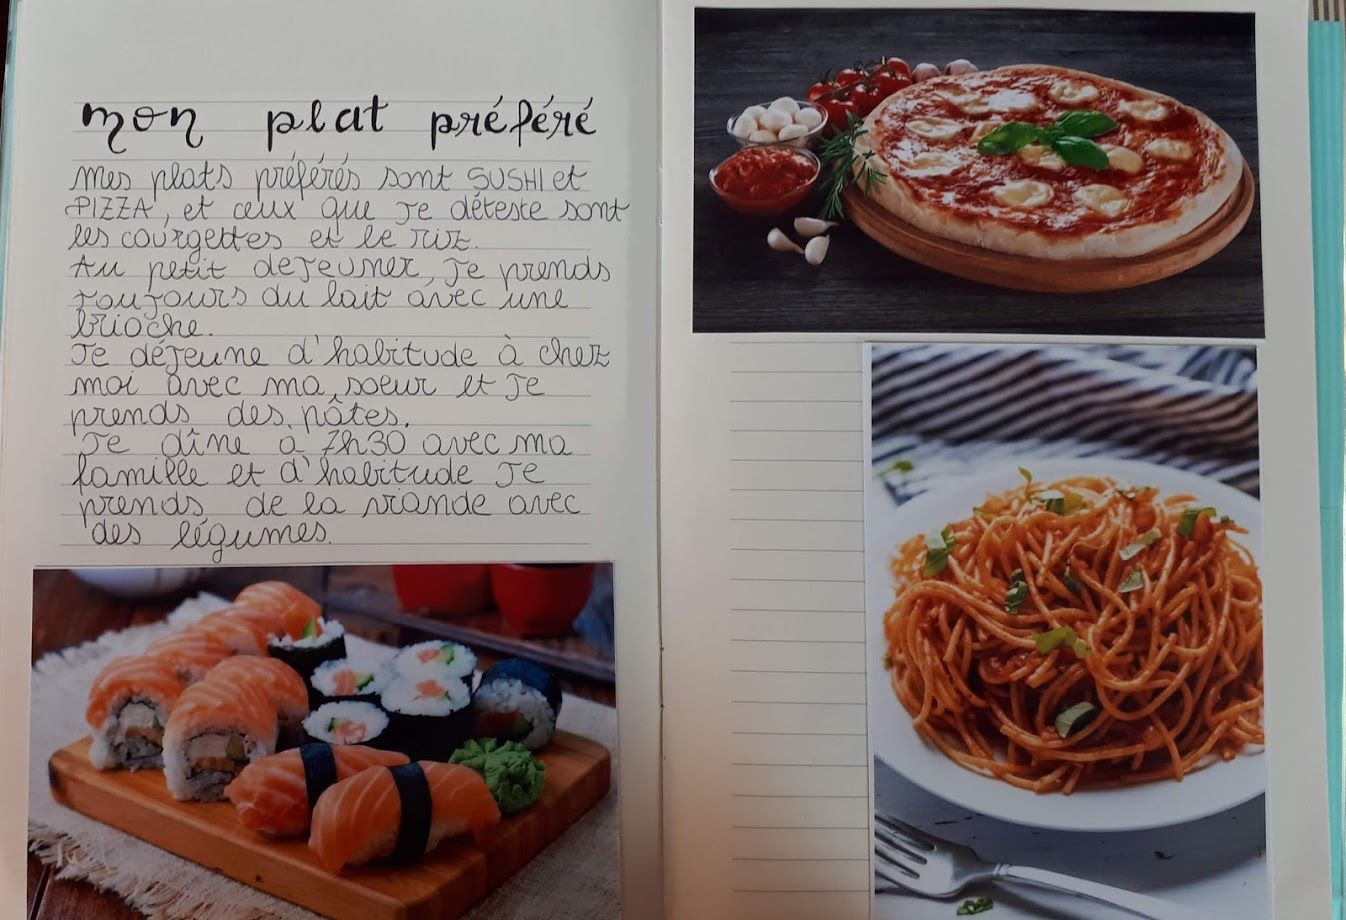 mon plat préféré
Mes plats préférés sont SUSHI et
PIZZA, et ceux que je déteste sont
les courgettes et le riz.
Au petit dejeuner, je prends
toujours du lait avec une
brioche.
Je déjeune d'habitude à chez
moi avec ma soeur et je
prends des pâtes.
Je dîne à 7h30 avec ma
famille et d'habitude je
prends de la viande avec
des légumes.